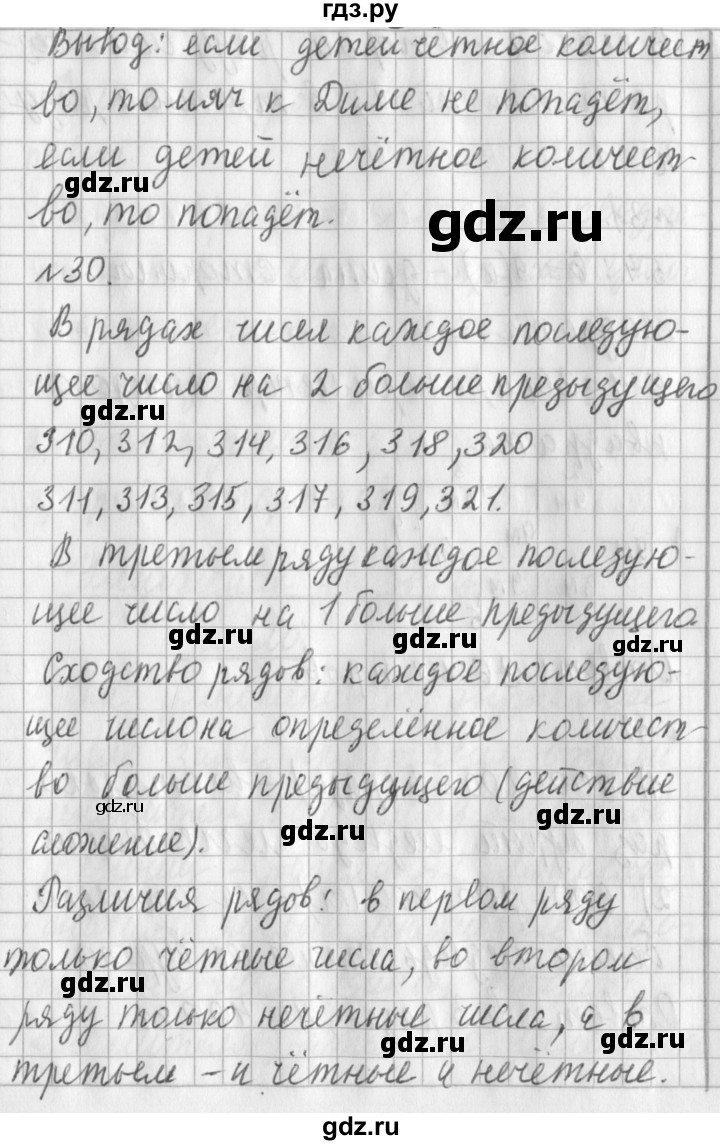 гдз.ру
Вывод: если детей чётное количест
во, то мяч к Диме не попадёт,
если детей нечётное количест-
gdz.ru
во, то попадёт.
gdz.ru
№30.
В рядах чисел каждое последую-
щее число на 2 больше предыдущего
gdz.ru
310, 312, 314, 316, 318, 320
311, 313, 315, 317, 319, 321.
В третьем ряду каждое последую-
щее число на 1 больше предыдущего
gdz.ru gdz.ru gdz.ru
Сходство рядов: каждое последую-
щее число на определённое количест-
во больше предыдущего (действие
gdz.ru gdz.ru gdz.ru
сложение).
Различия рядов: в первом ряду
только чётные числа, во втором
gdz.ru
ряду только нечётные числа, а в
gdz.ru gdz.ru
третьем - и чётные и нечётные.
gdz.ru